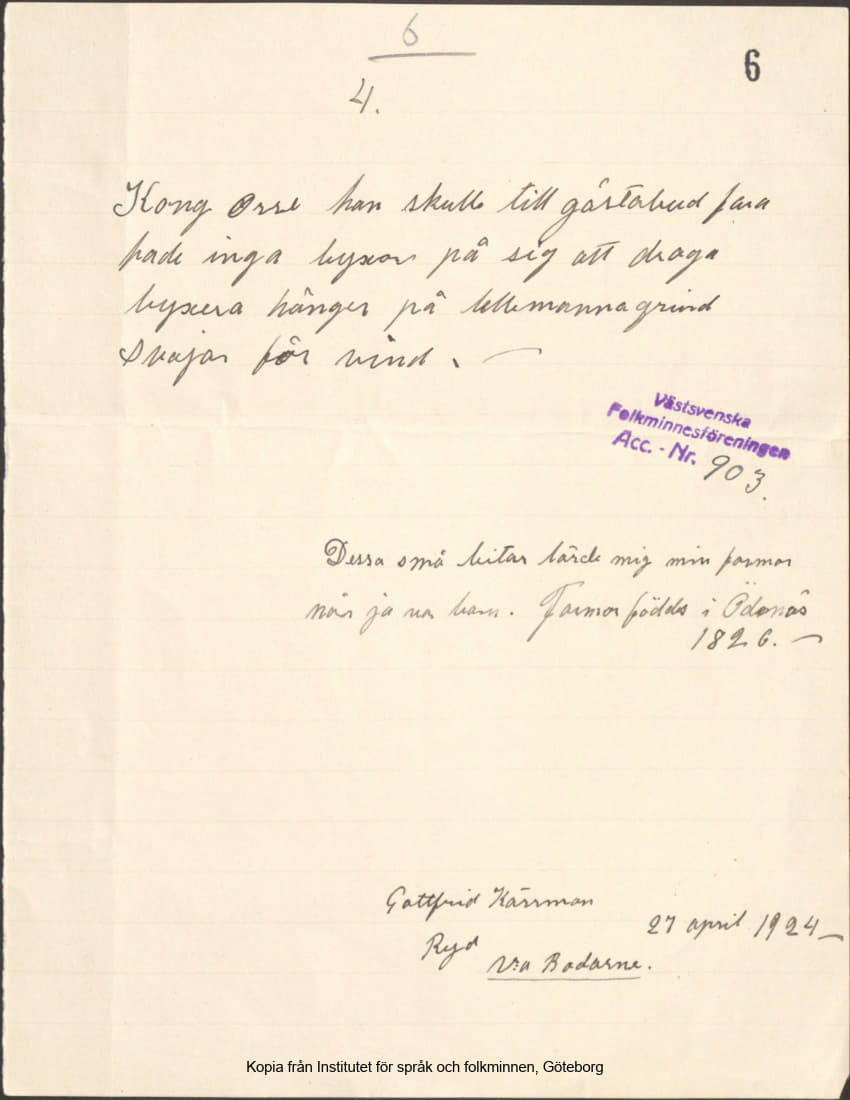 6
6
4.
Kong Orre han skulle till gästabud fara
hade inga byxor på sig att draga
byxera hänger på Ullemannagrind
Svajar för vind.
Västsvenska
Folkminnesföreningen
Acc. - Nr. 903.
Dessa små bitar lärde mig min farmor
när ja var barn. Farmor föddes i Ödenäs
1826. —
Gottfrid Kärrman
27 april 1924 —
Ryd
V:a Bodarne.
Kopia från Institutet för språk och folkminnen, Göteborg